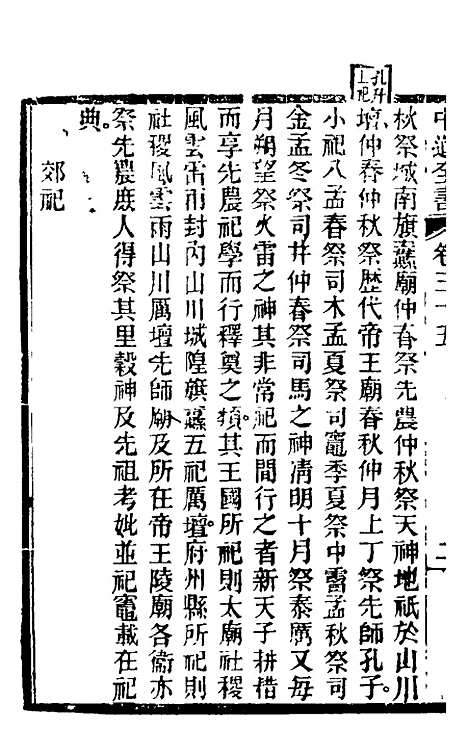 中道全書 卷三十五 二
孔升上祀
秋祭城南旗纛廟仲春祭先農仲秋祭天神地祇於山川
壇仲春仲秋祭歷代帝王廟春秋仲月上丁祭先師孔子
小祀八孟春祭司木孟夏祭司竈季夏祭中霤孟秋祭司
金孟冬祭司井仲春祭司馬之神清明十月祭泰厲又每
月朔望祭火雷之神其非常祀而間行之者新天子耕耤
而享先農祀學而行釋奠之類其王國所祀則太廟社稷
風雲雷雨封內山川城隍旗纛五祀厲壇府州縣所祀則
社稷風雲雨山川厲壇先師廟及所在帝王陵廟各衞亦
祭先農庶人得祭其里穀神及先祖考妣並祀竈載在祀
典
郊祀